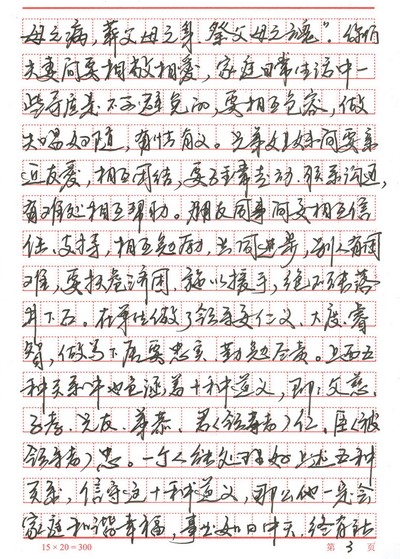 母之病，葬父母之身，祭父母之魂"。你们
夫妻间要相敬相爱，家庭日常生活中一
些矛盾是不可避免的，要相互包容，做
夫唱妇随，有情有义。兄弟姐妹间要亲
近友爱，相互团结，要经常走动，联系沟通，
有难处相互帮助。朋友同事间要相互信
任、支持，相互勉励，共同进步，别人有困
难，要扶危济困，施以援手，绝不能落
井下石。在单位做了领导要仁义、大度、睿
智，做为下属要忠实、勤勉尽责。上述五
种关系中也包涵着十种道义，即：父慈、
子孝、兄友、弟恭、君(领导者)仁、臣(被
领导者)忠。一个人能处理好上述五种
关系，信守这十种道义，那么他一定会
家庭和谐幸福，事业如日中天，终有社
15×20=300
第 3 页